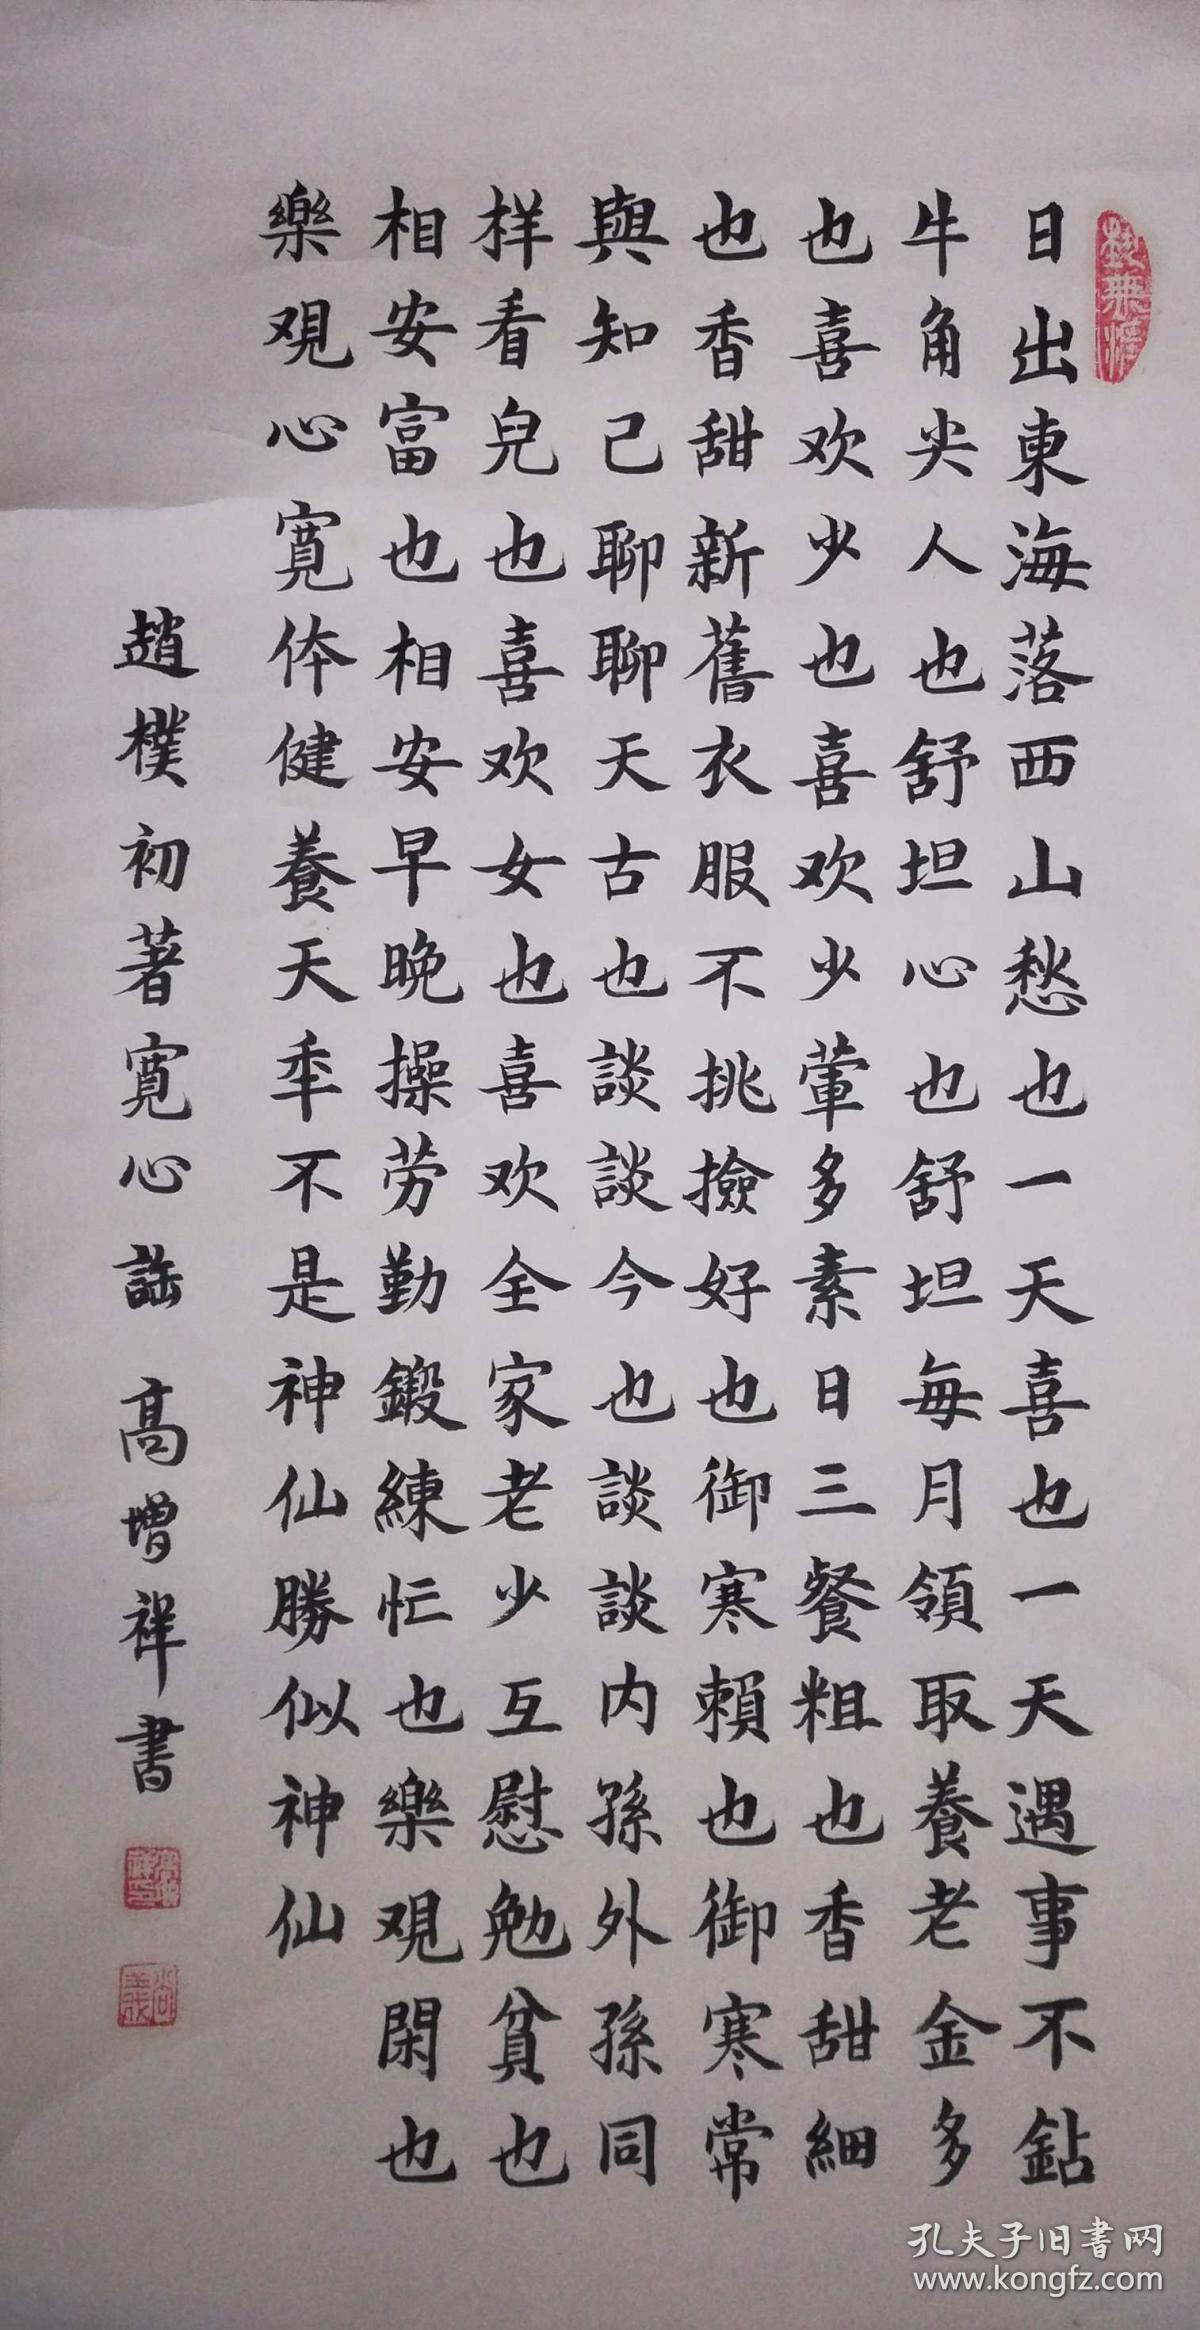 日出東海落西山愁也一天喜也一天遇事不鉆
牛角尖人也舒坦心也舒坦每月領取養老金多
也喜欢少也喜欢少葷多素日三餐粗也香甜細
也香甜新舊衣服不挑撿好也御寒賴也御寒常
與知己聊聊天古也談談今也談談内孫外孫同
样看兒也喜欢女也喜欢全家老少互慰勉貧也
相安富也相安早晚操劳勤鍛練忙也樂覌閑也
樂覌心寬体健養天年不是神仙勝似神仙
趙樸初著寬心謡 高增祥書
孔夫子旧书网
www.kongfz.com